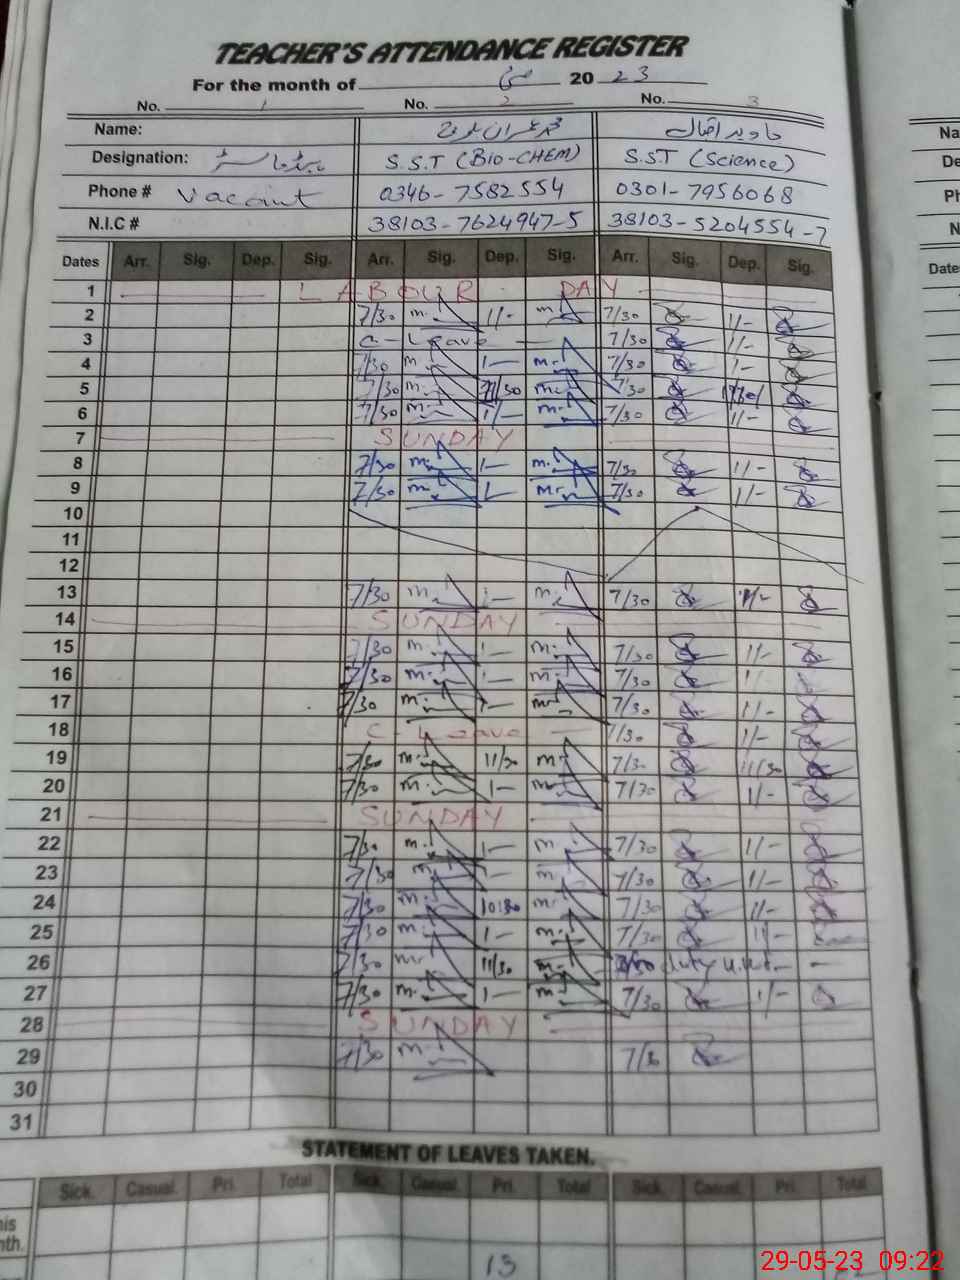 TEACHER'S ATTENDANCE REGISTER
For the month of مئی 20 23
No. 1 No. 2 No. 3
Name: محمد عمران جاوید اقبال
Designation: ہیڈ ماسٹر S.S.T (BIO-CHEM) S.S.T (Science)
Phone # Vacant 0346-7582554 0301-7956068
N.I.C # 38103-7624947-5 38103-5204554-7
Dates Arr. Sig. Dep. Sig. Arr. Sig. Dep. Sig. Arr. Sig. Dep. Sig.
1 LABOUR DAY
2 7/30 11/- 7/30 11/-
3 C-Leave 7/30 11/-
4 7/30 1- 7/30 1-
5 7/30 11/30 7/30 11/30
6 7/30 1/- 7/30 11/-
7 SUNDAY
8 7/30 1- 7/30 11/-
9 7/30 1- 7/30 11/-
10
11
12
13 7/30 1- 7/30 11/-
14 SUNDAY
15 7/30 1- 7/30 11/-
16 7/30 1- 7/30 11/-
17 7/30 1- 7/30 11/-
18 C-Leave 7/30 11/-
19 7/30 11/30 7/30 11/30
20 7/30 1- 7/30 11/-
21 SUNDAY
22 7/30 1- 7/30 11/-
23 7/30 1- 7/30 11/-
24 7/30 10:30 7/30 11/-
25 7/30 1- 7/30 11/-
26 7/30 11/30 duty
27 7/30 1- 7/30 11/-
28 SUNDAY
29 7/30 7/30
30
31
STATEMENT OF LEAVES TAKEN.
Sick. Casual. Pri. Total Sick. Casual. Pri. Total Sick. Casual. Pri. Total
his
nth.
13
Na
De
Ph
N
Date
29-05-23 09:22